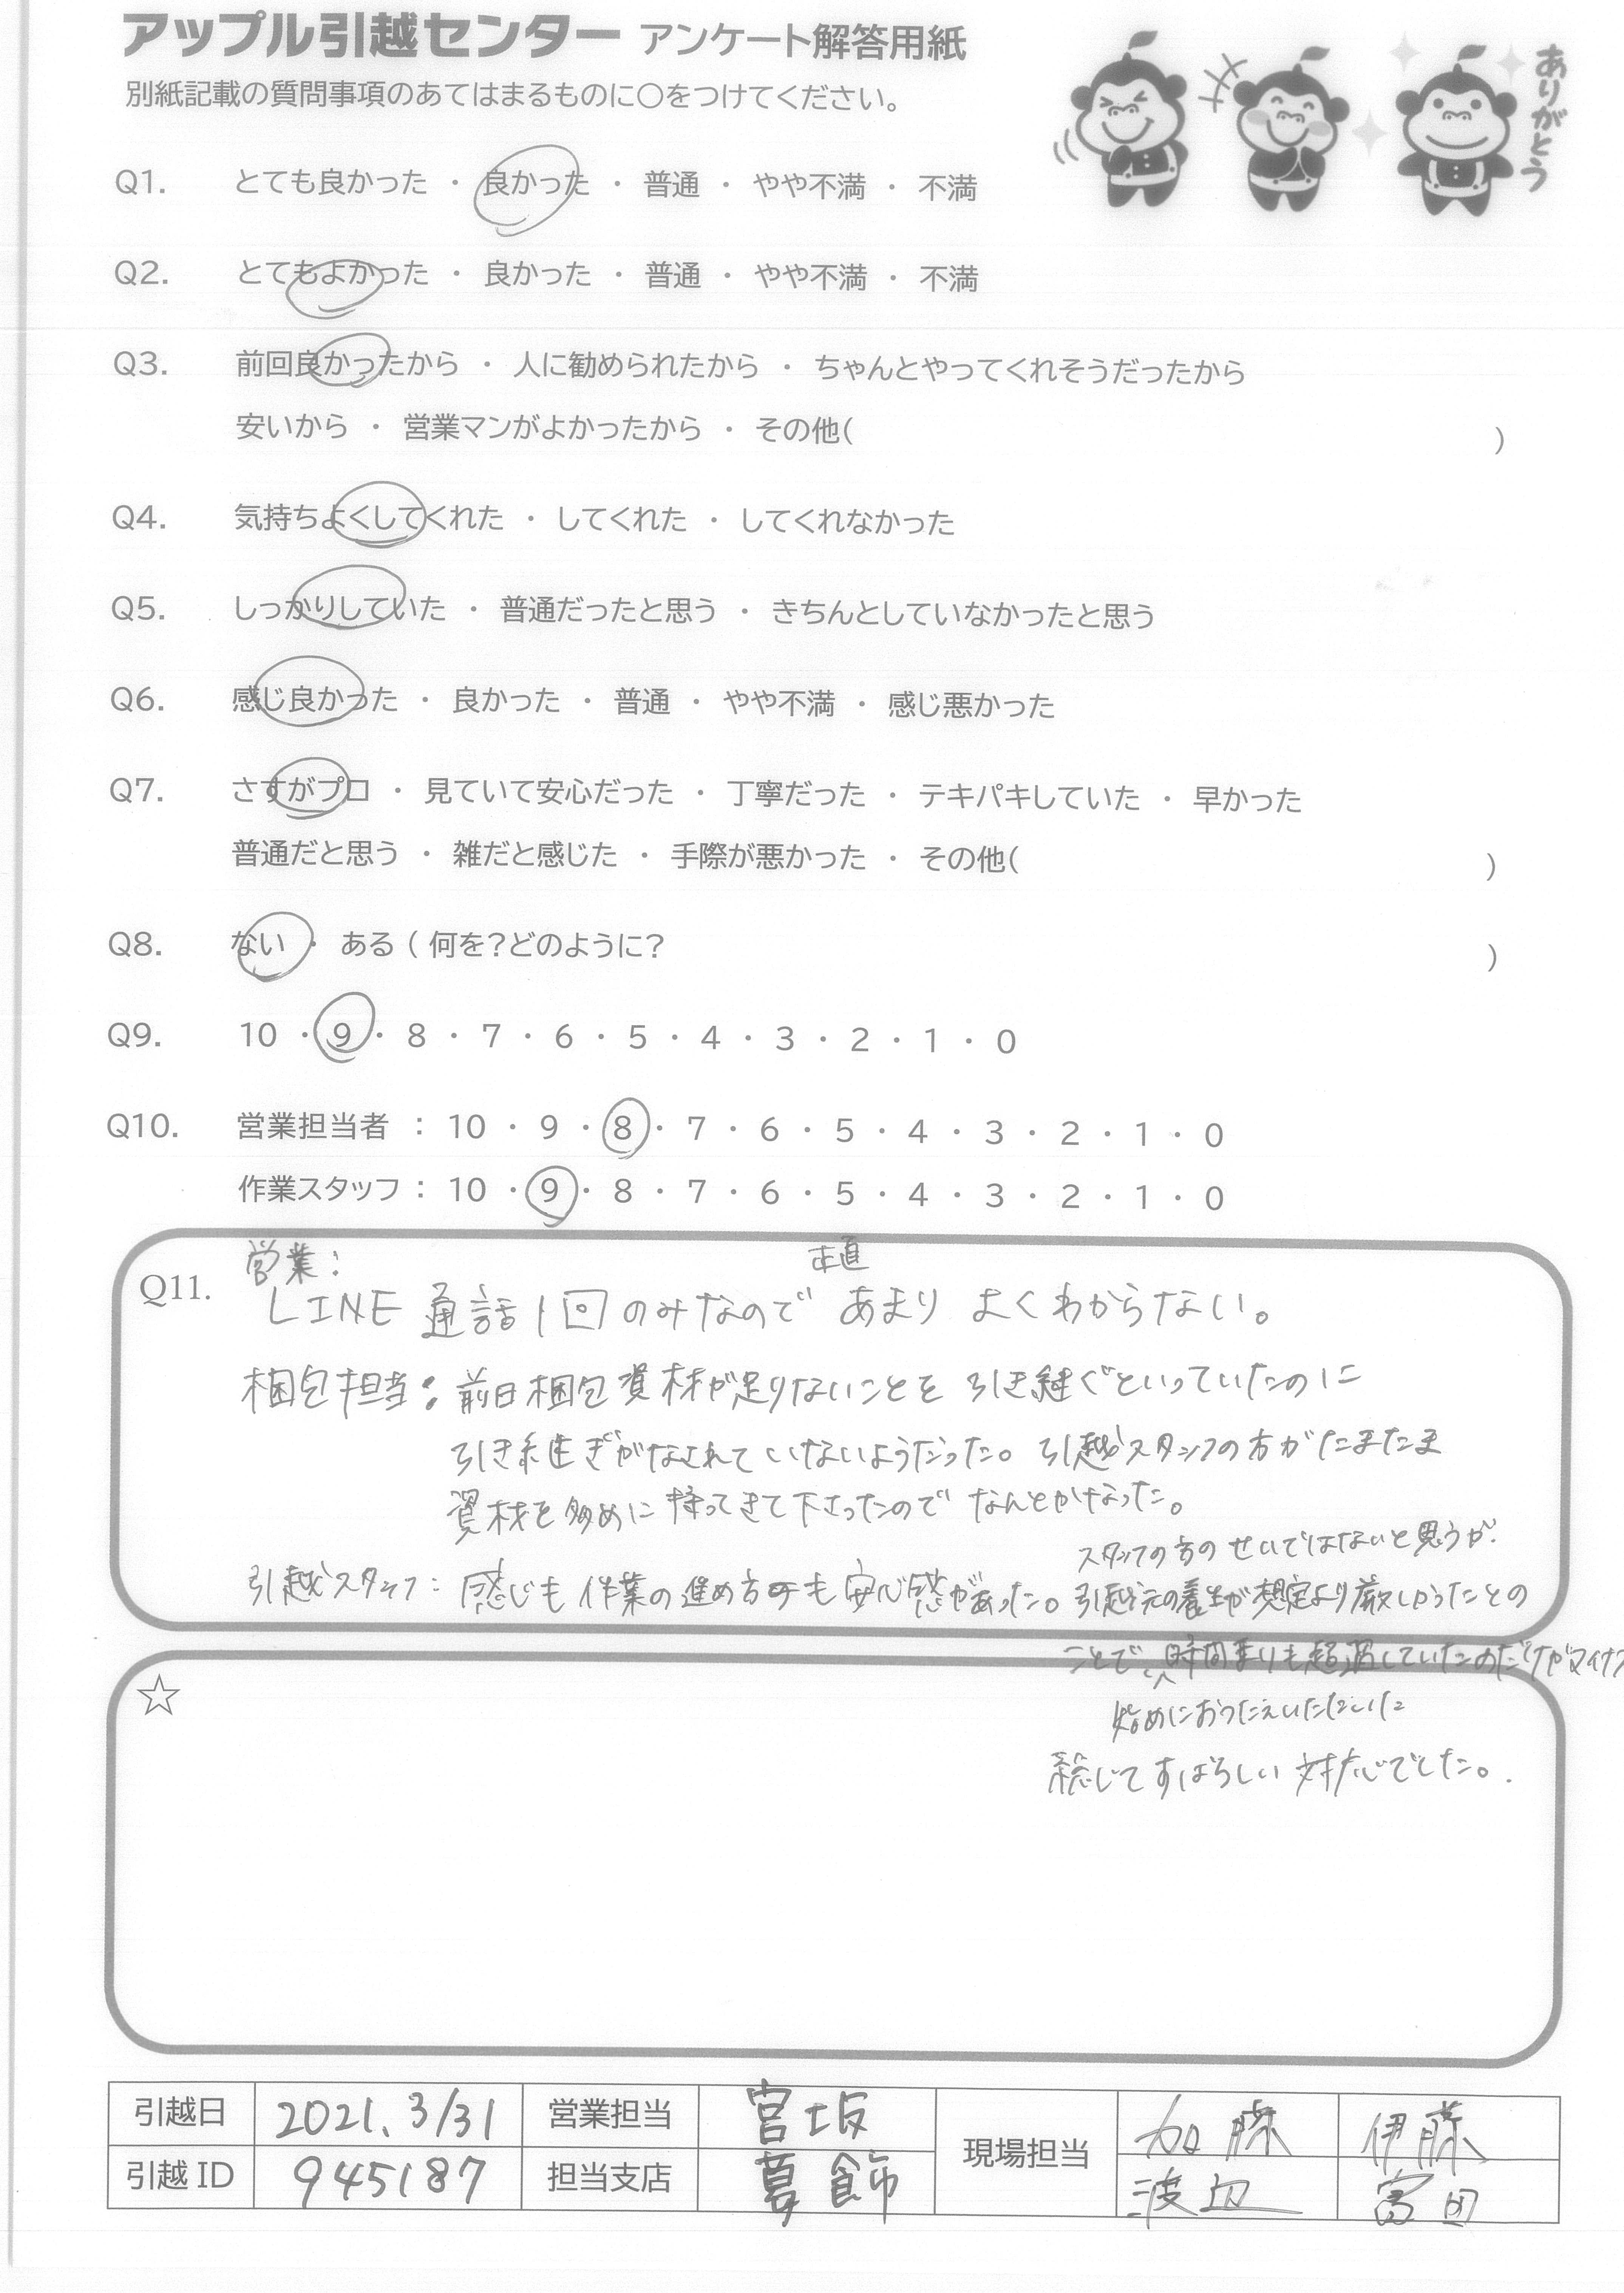 アップル引越センター アンケート解答用紙
別紙記載の質問事項のあてはまるものに〇をつけてください。
ありがとう
Q1. とても良かった ・ 良かった ・ 普通 ・ やや不満 ・ 不満
Q2. とてもよかった ・ 良かった ・ 普通 ・ やや不満 ・ 不満
Q3. 前回良かったから ・ 人に勧められたから ・ ちゃんとやってくれそうだったから
安いから ・ 営業マンがよかったから ・ その他( )
Q4. 気持ちよくしてくれた ・ してくれた ・ してくれなかった
Q5. しっかりしていた ・ 普通だったと思う ・ きちんとしていなかったと思う
Q6. 感じ良かった ・ 良かった ・ 普通 ・ やや不満 ・ 感じ悪かった
Q7. さすがプロ ・ 見ていて安心だった ・ 丁寧だった ・ テキパキしていた ・ 早かった
普通だと思う ・ 雑だと感じた ・ 手際が悪かった ・ その他( )
Q8. ない ・ ある ( 何を?どのように? )
Q9. 10 ・ 9 ・ 8 ・ 7 ・ 6 ・ 5 ・ 4 ・ 3 ・ 2 ・ 1 ・ 0
Q10. 営業担当者 : 10 ・ 9 ・ 8 ・ 7 ・ 6 ・ 5 ・ 4 ・ 3 ・ 2 ・ 1 ・ 0
作業スタッフ : 10 ・ 9 ・ 8 ・ 7 ・ 6 ・ 5 ・ 4 ・ 3 ・ 2 ・ 1 ・ 0
Q11. 営業:
正直
LINE 通話1回のみなので あまり よくわからない。
梱包担当: 前日梱包資材が足りないことを 引き継ぐといっていたのに
引き継ぎがなされていないようだった。引越スタッフの方がたまたま
資材を多めに持ってきて下さったので なんとかなった。
スタッフの方のせいではないと思うが、
引越スタッフ: 感じも作業の進め方も安心感があった。引越元の養生が想定より厳しかったとの
ことで、時間よりも超過していたのだけがマイナス
始めにおつたえいただいた
総じてすばらしい対応でした。
☆
引越日 2021.3/31 営業担当 宮坂 現場担当 加藤 伊藤
引越ID 945187 担当支店 葛飾 渡辺 富田